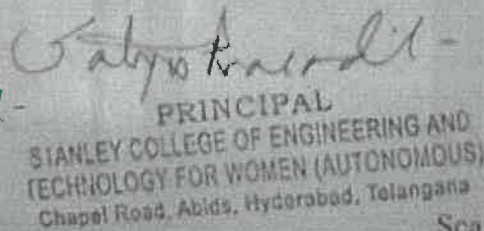 PRINCIPAL
STANLEY COLLEGE OF ENGINEERING AND
TECHNOLOGY FOR WOMEN (AUTONOMOUS)
Chapel Road, Abids, Hyderabad, Telangana
Sca